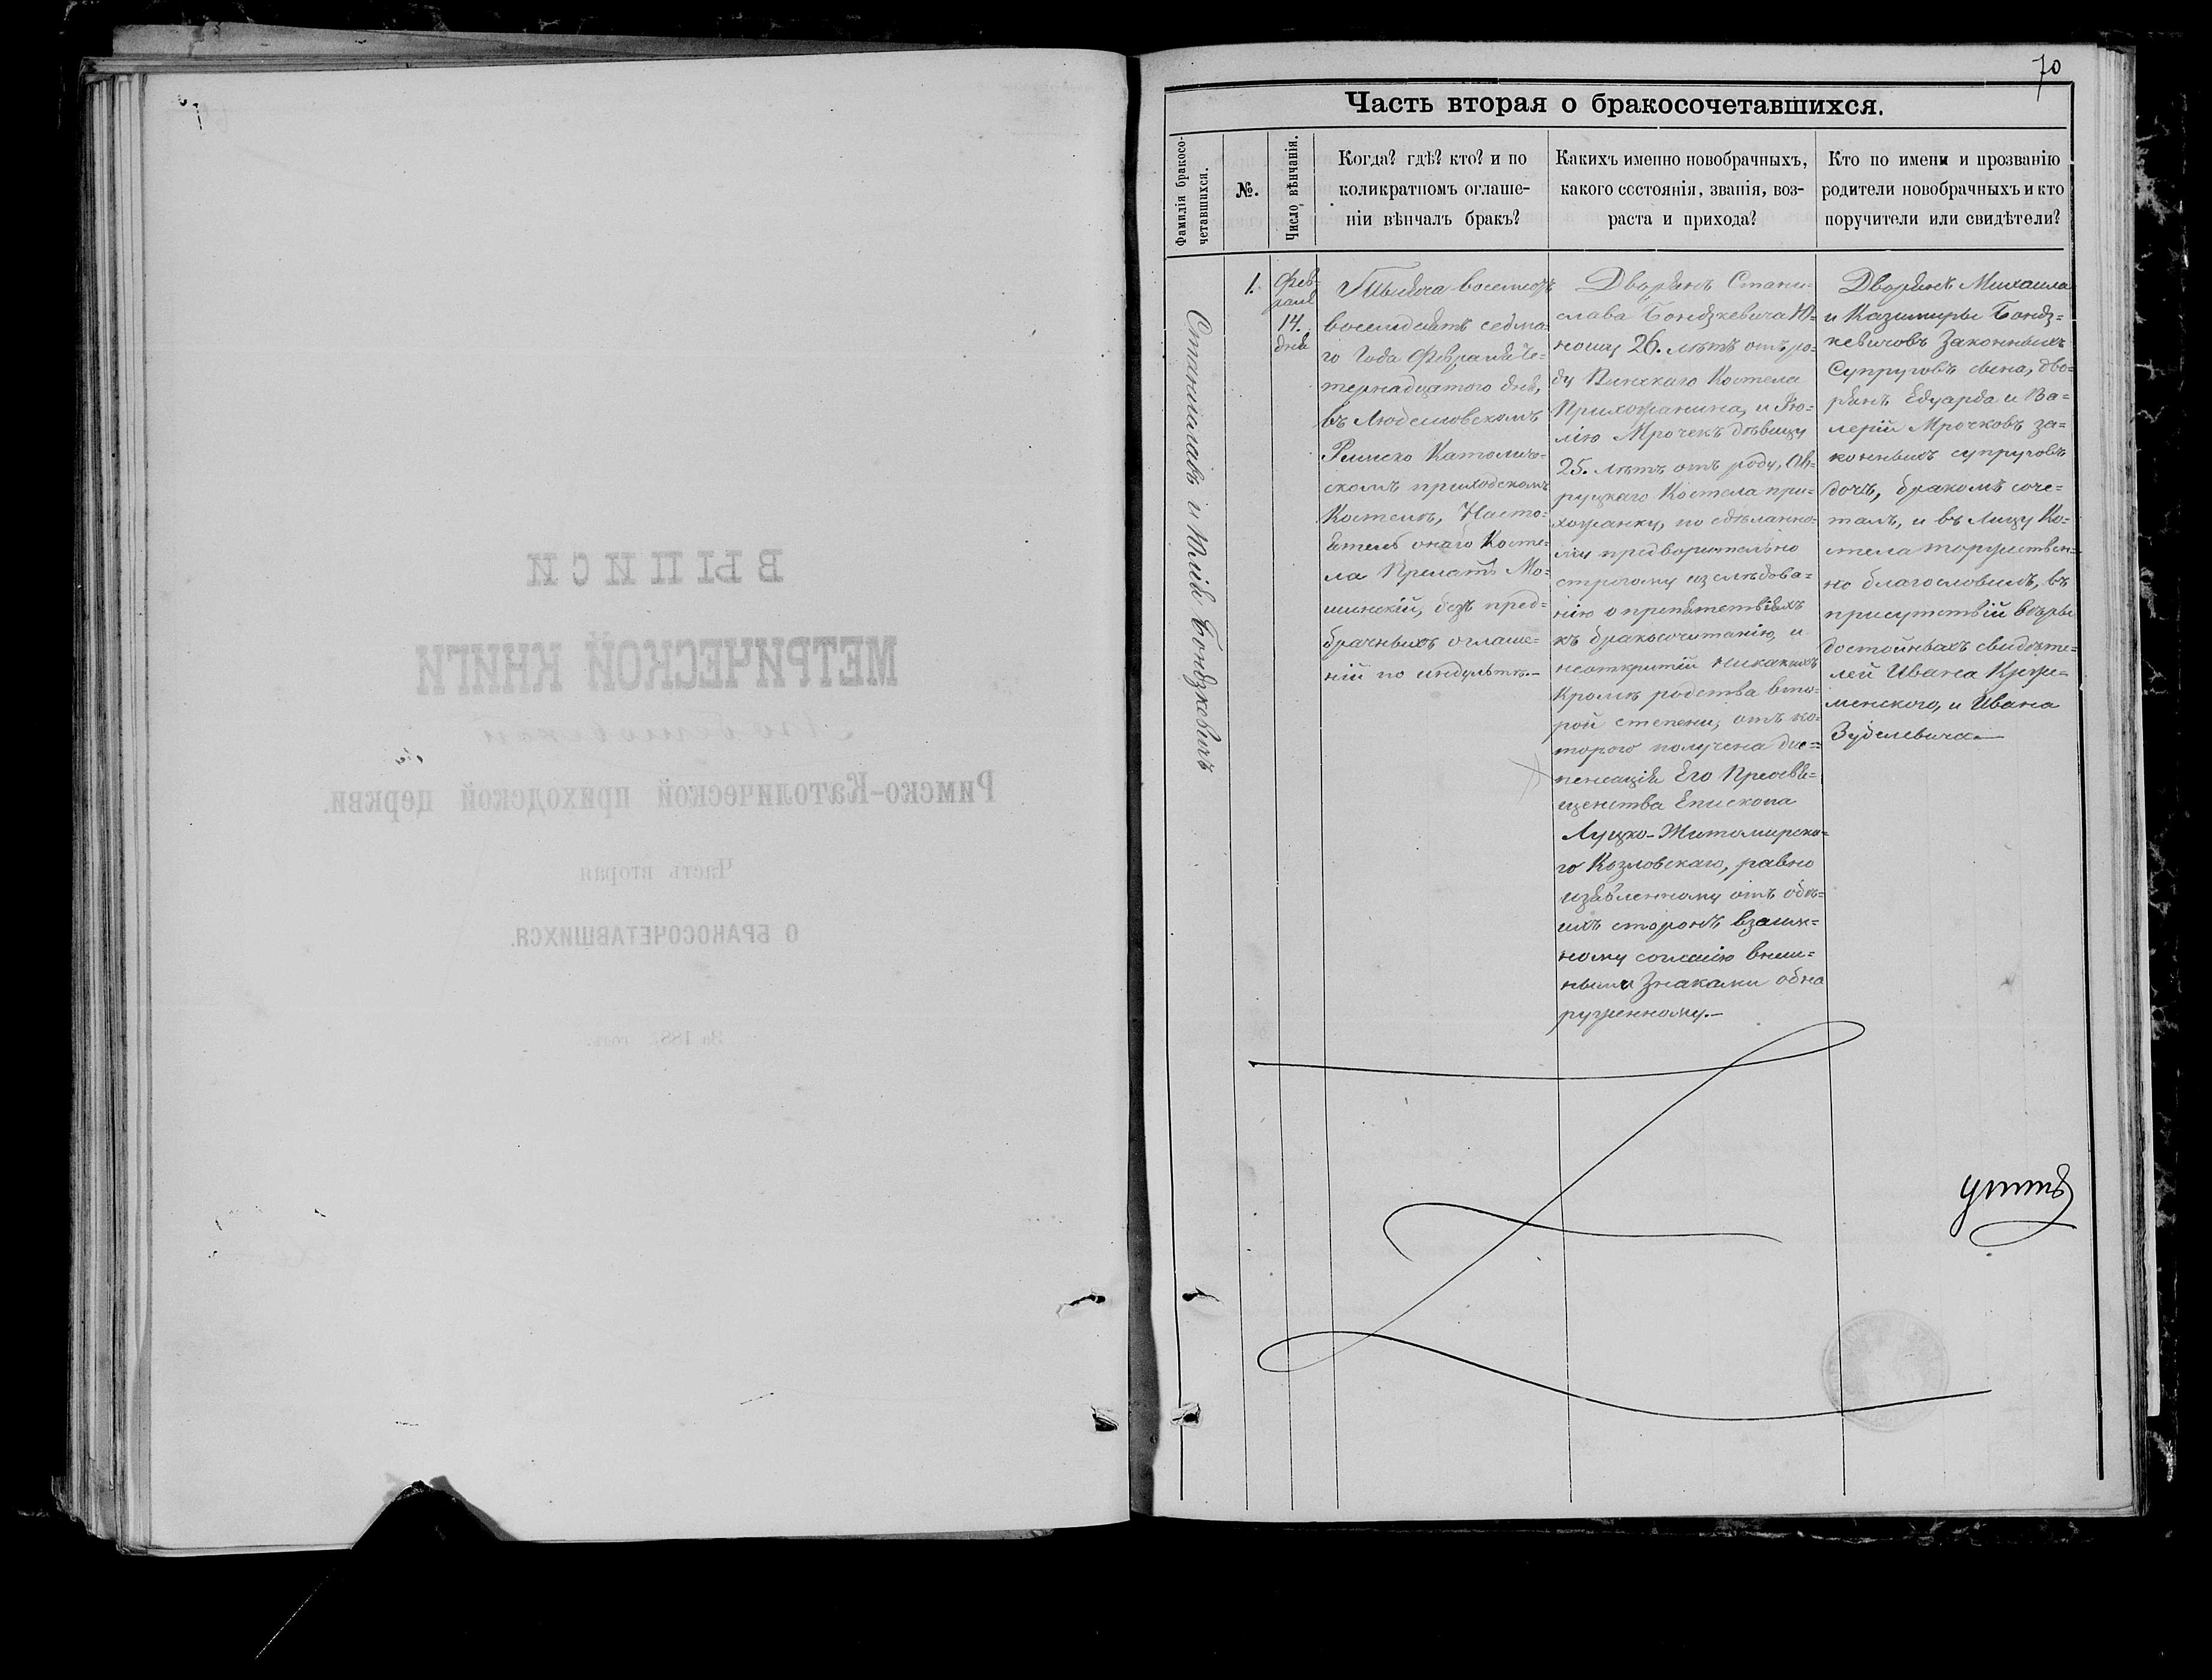 70
Часть вторая о бракосочетавшихся.
Фамилія бракосо-
четавшихся.
№.
Число вѣнчанія.
Когда? гдѣ? кто? и по
коликратномъ оглаше-
ніи вѣнчалъ бракъ?
Какихъ именно новобрачныхъ,
какого состоянія, званія, воз-
раста и прихода?
Кто по имени и прозванію
родители новобрачныхъ и кто
поручители или свидѣтели?
Станиславъ и Юлія Бондзкевичъ
1.
Фев-
раля
14.
дня
Тысяча восемсотъ
восемдесятъ седма-
го Года Февраля Че-
тернадцатого дня,
въ Любешовскомъ
Римско Католиче-
скомъ приходскомъ
Костелѣ, Насто-
ятель онаго Косте-
ла Прелатъ Мо-
шинскій, безъ пред-
брачныхъ оглаше-
ній по индульту.—
Дворянъ Стани-
слава Бондзкевича Ю-
ношу 26. лѣтъ отъ ро-
ду Пинскаго Костела
Прихожанина, и Ю-
лію Мрочекъ дѣвицу
25. лѣтъ отъ роду, Ов-
руцкаго Костела при-
хожанку, по сдѣланно-
му предворительно
строгому изслѣдова-
нію о препятствіяхъ
къ бракосочитанію, и
неоткритіи никакихъ
Кромѣ родства вто-
рой степени, отъ ко-
торого получена дис-
пенсація Его Преосвя-
щенства Епископа
Луцко-Житомирска-
го Козловскаго, равно
изявленному отъ обѣ-
ихъ сторонъ взаим-
ному согласію внеш-
ными Знаками обна
руженному.—
Дворянъ Михаила
и Казимиры Бондз-
кевичовъ Законныхъ
Супруговъ сына, дво-
рянъ Едуарда и Ва-
леріи Мрочковъ за-
конныхъ супруговъ
дочь, бракомъ соче-
талъ, и въ лицу Ко-
стела торжествен-
но благословилъ, въ
присутствіи вѣры
достойныхъ свидѣте-
лей Ивана Крже-
менского, и Ивана
Зубелевича.—
ВЫПИСИ
МЕТРИЧЕСКОЙ КНИГИ
Любешовской
Римско-Католической приходской церкви.
Часть вторая
О БРАКОСОЧЕТАВШИХСЯ.
За 188 годъ.